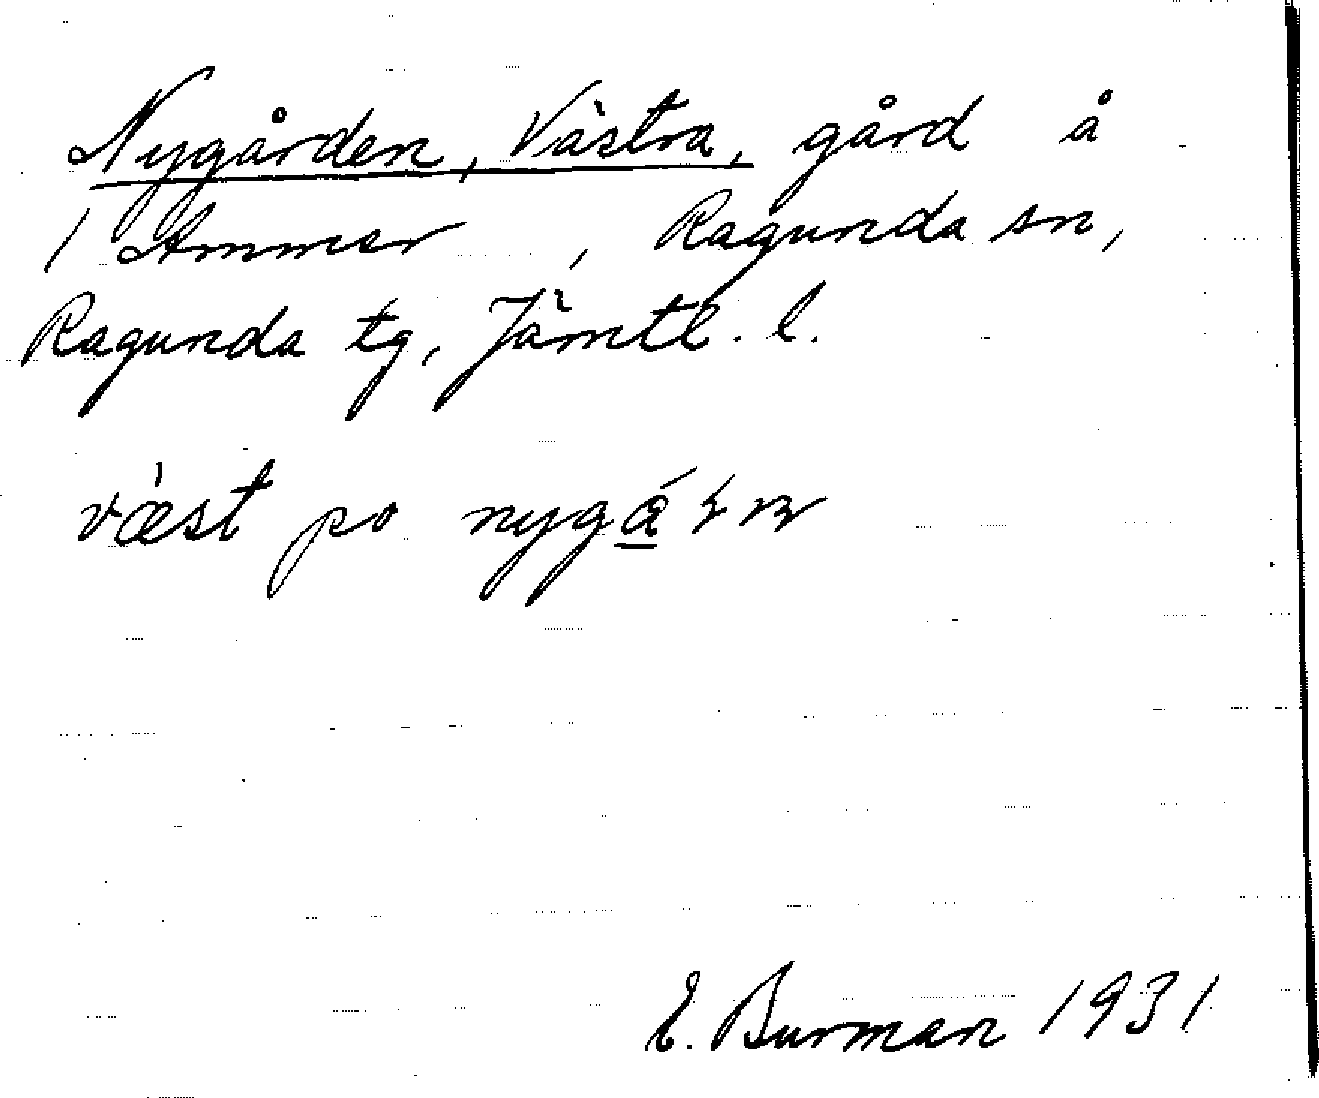 Nygården, Västra, gård å
1 Ammer, Ragunda sn,
Ragunda tg, Jämtl. l.
væst po
E. Burman 1931